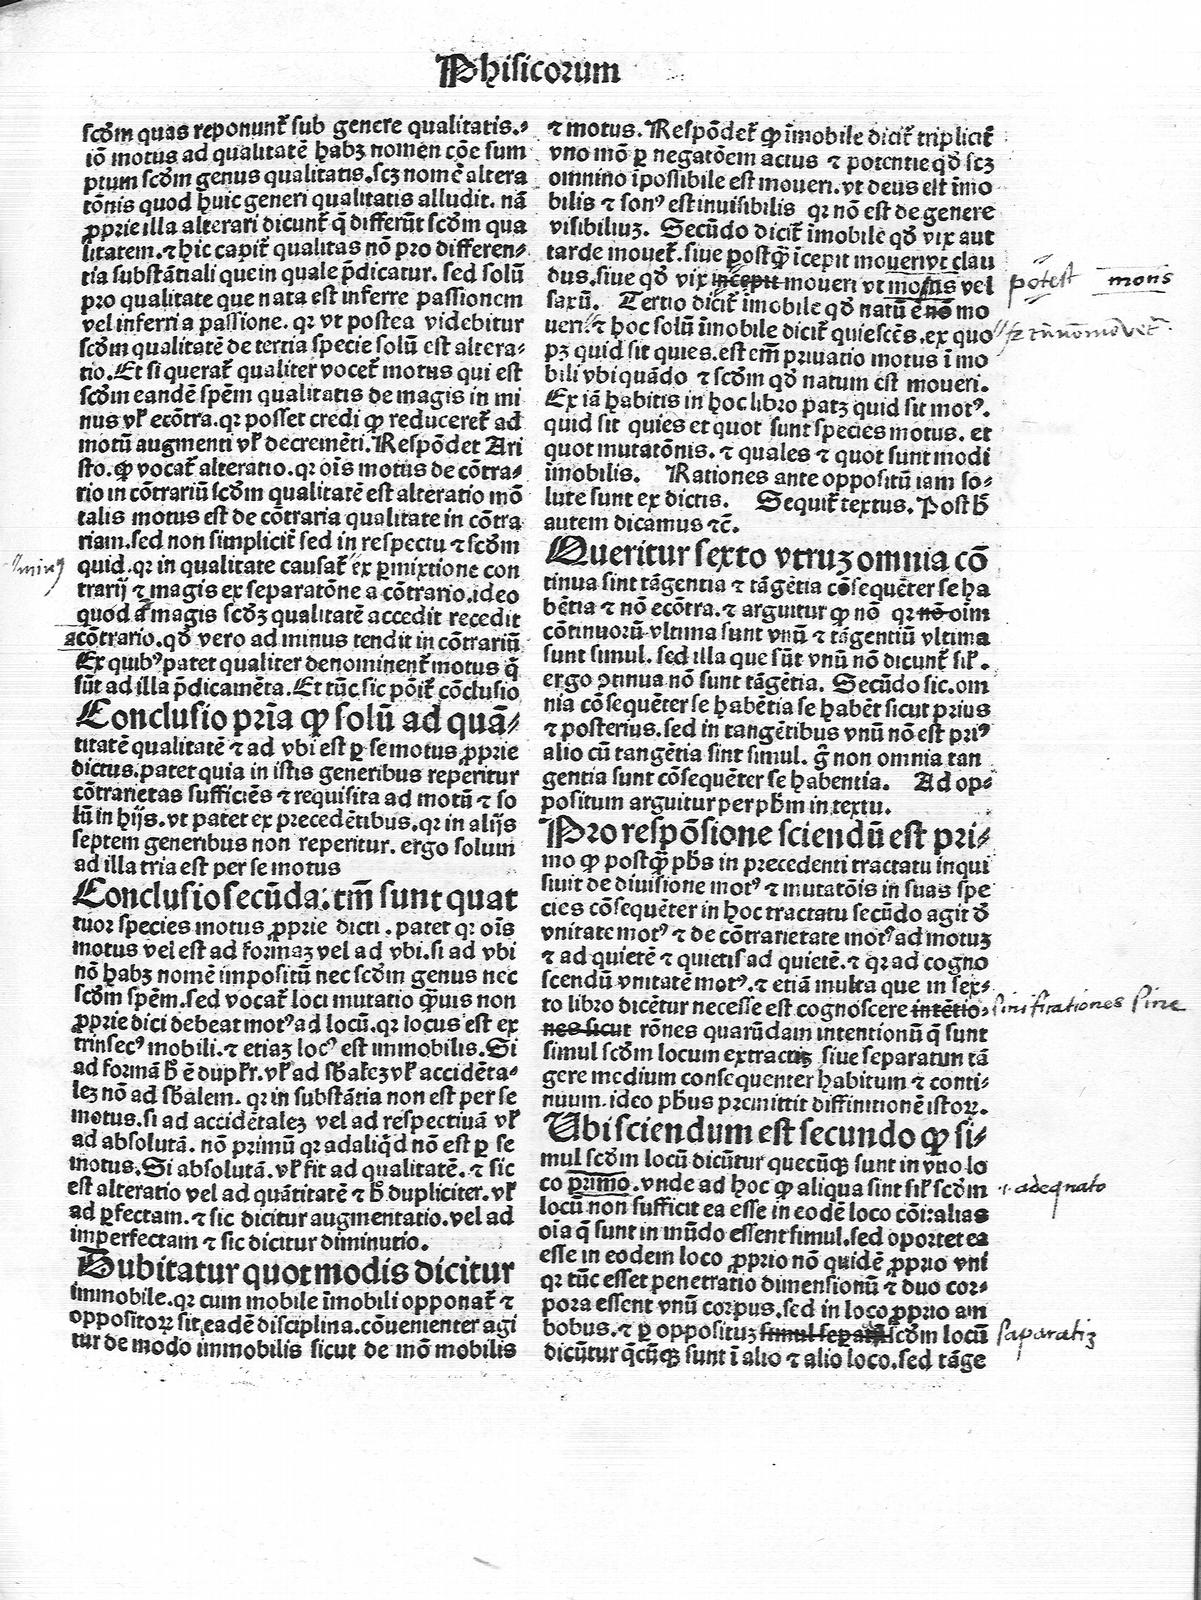 Phisicorum
scd̄m quas reponunt̄ sub genere qualitatis.
iō motus ad qualitatē habꝫ nomen cōe sum
ptum scd̄m genus qualitatis.scꝫ nomē altera
tōnis quod huic generi qualitatis alludit. nā
ꝓprie illa alterari dicunt̄ q̄ differūt scd̄m qua
litatem.⁊ hic capit̄ qualitas nō pro differen⸗
tia substātiali que in quale p̄dicatur. sed solū
pro qualitate que nata est inferre passionem
vel inferri a passione. qꝛ vt postea videbitur
scd̄m qualitatē de tertia specie solū est altera⸗
tio. Et si querat̄ qualiter vocet̄ motus qui est
scd̄m eandē spēm qualitatis de magis in mi
nus vl̄ ecōtra.qꝛ posset credi ꝙ reduceret̄ ad
motū augmenti vl̄ decremēti.Respōdet Ari
sto.ꝙ vocat̄ alteratio.qꝛ oīs motus de cōtra⸗
rio in cōtrariū scd̄m qualitatē est alteratio mō
talis motus est de cōtraria qualitate in cōtra
riam.sed non simplicit̄ sed in respectu ⁊ scd̄m
quid.qꝛ in qualitate causat̄ ex ꝑmixtione con
trarij ⁊ magis ex separatōne a cōtrario.ideo
quod ad magis scd̄ꝫ qualitatē accedit recedit
acōtrario.qd̄ vero ad minus tendit in cōtrariū
Ex quibꝰ patet qualiter denominent̄ motus q̄
sūt ad illa p̄dicamēta.Et tūc sic pōit̄ cōclusio
Conclusio prīa ꝙ solū ad quā⸗
titatē qualitatē ⁊ ad vbi est ꝑ se motus ꝓprie
dictus.patet quia in istis generibus reperitur
cōtrarietas sufficiēs ⁊ requisita ad motū ⁊ so
lū in hijs.vt patet ex precedētibus.qꝛ in alijs
septem generibus non reperitur. ergo solum
ad illa tria est per se motus
Conclusio secūda: tm̄ sunt quat
tuor species motus ꝓprie dicti. patet qꝛ oīs
motus vel est ad formaꝫ vel ad vbi.si ad vbi
nō habꝫ nomē impositū nec scd̄m genus nec
scd̄m spēm.sed vocat̄ loci mutatio ꝙ̄uis non
ꝓprie dici debeat motꝰ ad locū.qꝛ locus est ex
trinsecꝰ mobili.⁊ etiaꝫ locꝰ est immobilis.Si
ad formā h̄ ē duplr̄.vl̄ ad sb̄aleꝫ vl̄ accidēta⸗
leꝫ nō ad sb̄alem. qꝛ in substātia non est per se
motus.si ad accidētaleꝫ vel ad respectiuā vl̄
ad absolutā. nō primū qꝛ ad aliq̄d nō est ꝑ se
motus.Si absolutā. vl̄ fit ad qualitatē. ⁊ sic
est alteratio vel ad quātitatē ⁊ h̄ dupliciter.vl̄
ad ꝑfectam. ⁊ sic dicitur augmentatio.vel ad
imperfectam ⁊ sic dicitur diminutio.
Dubitatur quot modis dicitur
immobile.qꝛ cum mobile īmobili opponat̄ ⁊
oppositoꝝ sit eadē disciplina.cōuenienter agi
tur de modo immobilis sicut de mō mobilis
⁊ motus. Respōdet̄ ꝙ īmobile dicit̄ triplicit̄
vno mō ꝑ negatōem actus ⁊ potentie qd̄ scꝫ
omnino īpossibile est moueri.vt deus est īmo
bilis ⁊ sonꝰ est inuisibilis qꝛ nō est de genere
visibiliuꝫ. Secūdo dicit̄ īmobile qd̄ vix aut
tarde mouet̄.siue postꝙ̄ icepit moueri vt clau
dus.siue qd̄ vix incepit moueri vt mons vel
saxū. Tertio dicit̄ īmobile qd̄ natū ē nō mo
ueri.⁊ hoc solū īmobile dicit̄ quiescēs.ex quo
pꝫ quid sit quies.est em̄ priuatio motus ī mo
bili vbi quādo ⁊ scd̄m qd̄ natum est moueri.
Ex iā habitis in hoc libro patꝫ quid sit motꝰ.
quid sit quies et quot sunt species motus. et
quot mutatōnis. ⁊ quales ⁊ quot sunt modi
īmobilis. Rationes ante oppositū iam so⸗
lute sunt ex dictis. Sequit̄ textus. Post h̄
autem dicamus ⁊c̄.
Queritur sexto vtruꝫ omnia cō
tinua sint tāgentia ⁊ tāgētia cōsequēter se ha
bētia ⁊ nō ecōtra. ⁊ arguitur ꝙ nō qꝛ nō oīm
cōtinuorū vltima sunt vnū ⁊ tāgentiū vltima
sunt simul. sed illa que sūt vnū nō dicunt̄ sil̄.
ergo ↄtinua nō sunt tāgētia. Secūdo sic.om
nia cōsequēter se habētia se habēt sicut prius
⁊ posterius.sed in tangētibus vnū nō est priꝰ
alio cū tangētia sint simul. g̊ non omnia tan
gentia sunt cōsequēter se habentia. Ad op⸗
positum arguitur per ph̄m in textu.
Pro respōsione sciendū est pri⸗
mo ꝙ postꝙ̄ ph̄s in precedenti tractatu inqui
siuit de diuisione motꝰ ⁊ mutatōis in suas spe
cies cōsequēter in hoc tractatu secūdo agit d̄
vnitate motꝰ ⁊ de cōtrarietate motꝰ ad motuꝫ
⁊ ad quietē ⁊ quietis ad quietē. ⁊ qꝛ ad cogno
scendū vnitatē motꝰ. ⁊ etiā multa que in sex⸗
to libro dicētur necesse est cognoscere intētio⸗
nes sicut rōnes quarūdam intentionū q̄ sunt
simul scd̄m locum extractis siue separatum tā
gere medium consequenter habitum ⁊ conti⸗
nuum. ideo ph̄us premittit diffinitionē istoꝝ.
Ubi sciendum est secundo ꝙ si⸗
mul scd̄m locū dicūtur quecūqꝫ sunt in vno lo
co primo.vnde ad hoc ꝙ aliqua sint sil̄ scd̄m
locū non sufficit ea esse in eodē loco cōi:alias
oīa q̄ sunt in mūdo essent simul.sed oportet ea
esse in eodem loco ꝓprio nō quidē ꝓprio vni
qꝛ tūc esset penetratio dimensionū ⁊ duo cor⸗
pora essent vnū corpus.sed in loco ꝓprio am
bobus.⁊ ꝑ opposituꝫ simul separa scd̄m locū
dicūtur q̄cūqꝫ sunt ī alio ⁊ alio loco.sed tāge
minꝰ
potest mons
adeqnato
saparatiꝫ